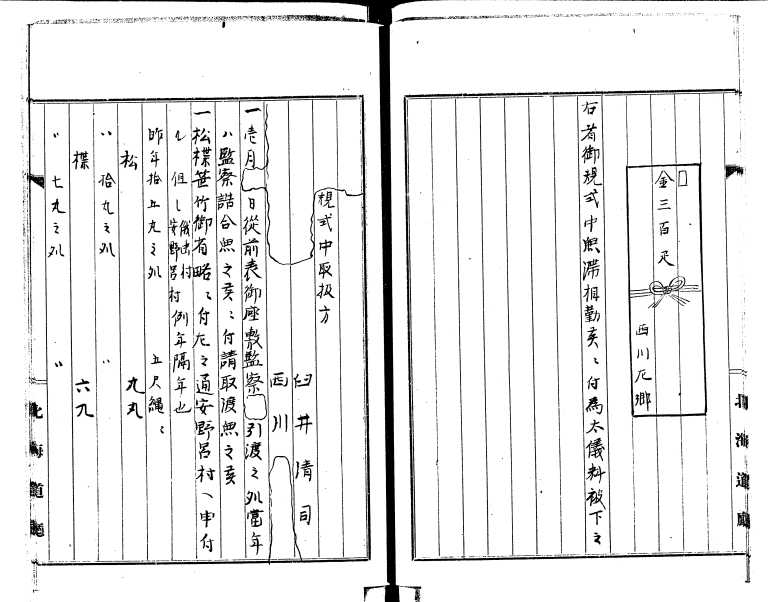 金三百疋
西川左郷
右者御規式中無滞相勤候ニ付為太儀料被下之
北海道廳
規式中取扱方
臼井清司
西川
一壱月 日従前表御座敷監察 引渡之処當年
ハ監察詰合無之候ニ付請取渡無之候
一松楪笹竹御省略ニ付左之通安野呂村ヘ申付
ル但し 俄虫村 安野呂村 例年隔年也
昨年拾五丸之処 五尺縄ニ
松 九丸
〃拾九丸之処 〃
楪 六丸
〃七丸之処 〃
北海道廳